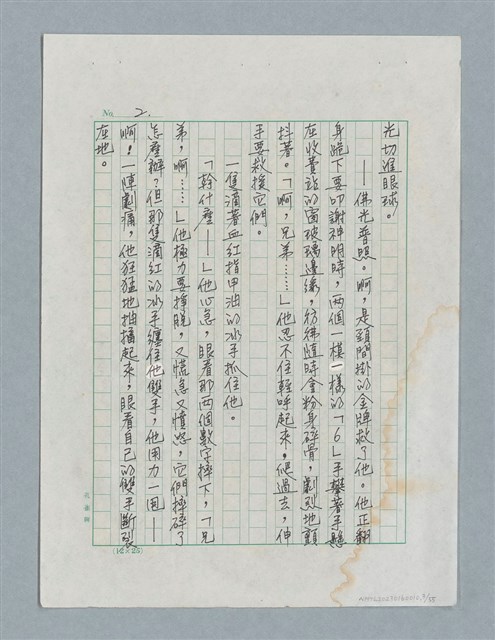 No. 2.
光切進眼球。
——佛光普照。啊，是頸間掛的金牌救了他。他正翻
身跪下要叩謝神明時，兩個一模一樣的「6」手攀著手懸
在收費站的窗玻璃邊緣，彷彿隨時會粉身碎骨，劇烈地顫
抖著。「啊，兄弟……」他忍不住輕呼起來，爬過去，伸
手要救援它們。
一隻滴著血紅指甲油的冰手抓住他。
「幹什麼——」他心急，眼看那兩個數字摔下，「兄
弟，啊……」他極力要掙脫，又慌急又憤怒，它們摔碎了
怎麼辦？但那隻滴紅的冰手纏住他雙手，他用力一甩——
啊！一陣劇痛，他狂猛地抽搐起來，眼看自己的雙手斷裂
在地。
(12×25)